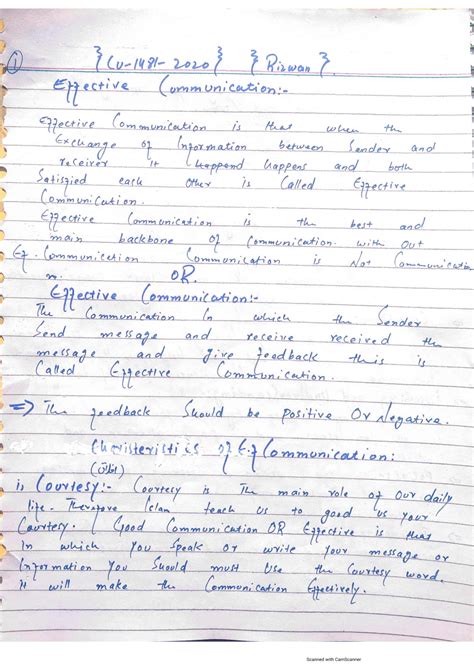 ① {CU-1481-2020} {Rizwan}.
Effective Communication:-
Effective Communication is that when the
Exchange of Information between Sender and
receiver it happend happens and both
Satisfied each other is Called Effective
Communication.
Effective Communication is the best and
main backbone of Communication. with out
Ef. Communication Communication is Not Communication
OR
Effective Communication:-
The Communication In which the Sender
Send message and receive received the
message and give feedback this is
Called Effective Communication.
=> The feedback Should be Positive Or Negative.
Charisteristics of Ef Communication:
i, Courtesy:- Courtesy is The main role of Our daily
life. Therefore Islam teach us to good us your
Courtesy. Good Communication OR Effective is that
In which you Speak or write your message or
Information you Should must Use the Courtesy word.
it will make the Communication Effectively.
Scanned with CamScanner